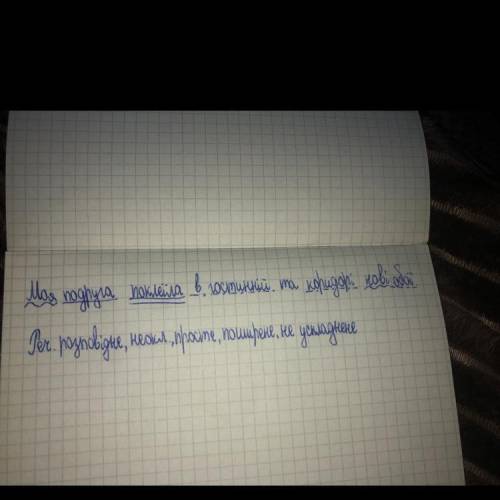 Моя подруга поклеїла в гостинній та коридорі нові обої.
Реч. розповідне, неокл., просте, поширене, не ускладнене